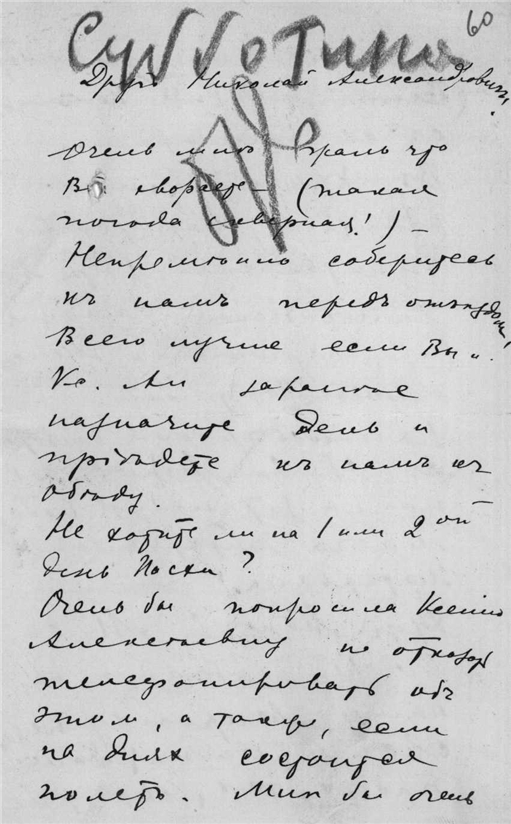 60
Субботина
Другъ Николай Александровичъ.
Очень мнѣ жаль что
Вы хвораете – (такая
погода скверная!) –
Непремѣнно соберитесь
къ намъ передъ отъѣздомъ,
Всего лучше если Вы и
Кс. Ал заранѣе
назначите день и
пріѣдете къ намъ къ
обѣду.
Не хотите ли на 1 или 2ой
день Пасхи?
Очень бы попросила Ксенію
Алексѣевну не отказать
телефонировать объ
этом, а также, если
на днях состоится
полетъ. Мнѣ бы очень